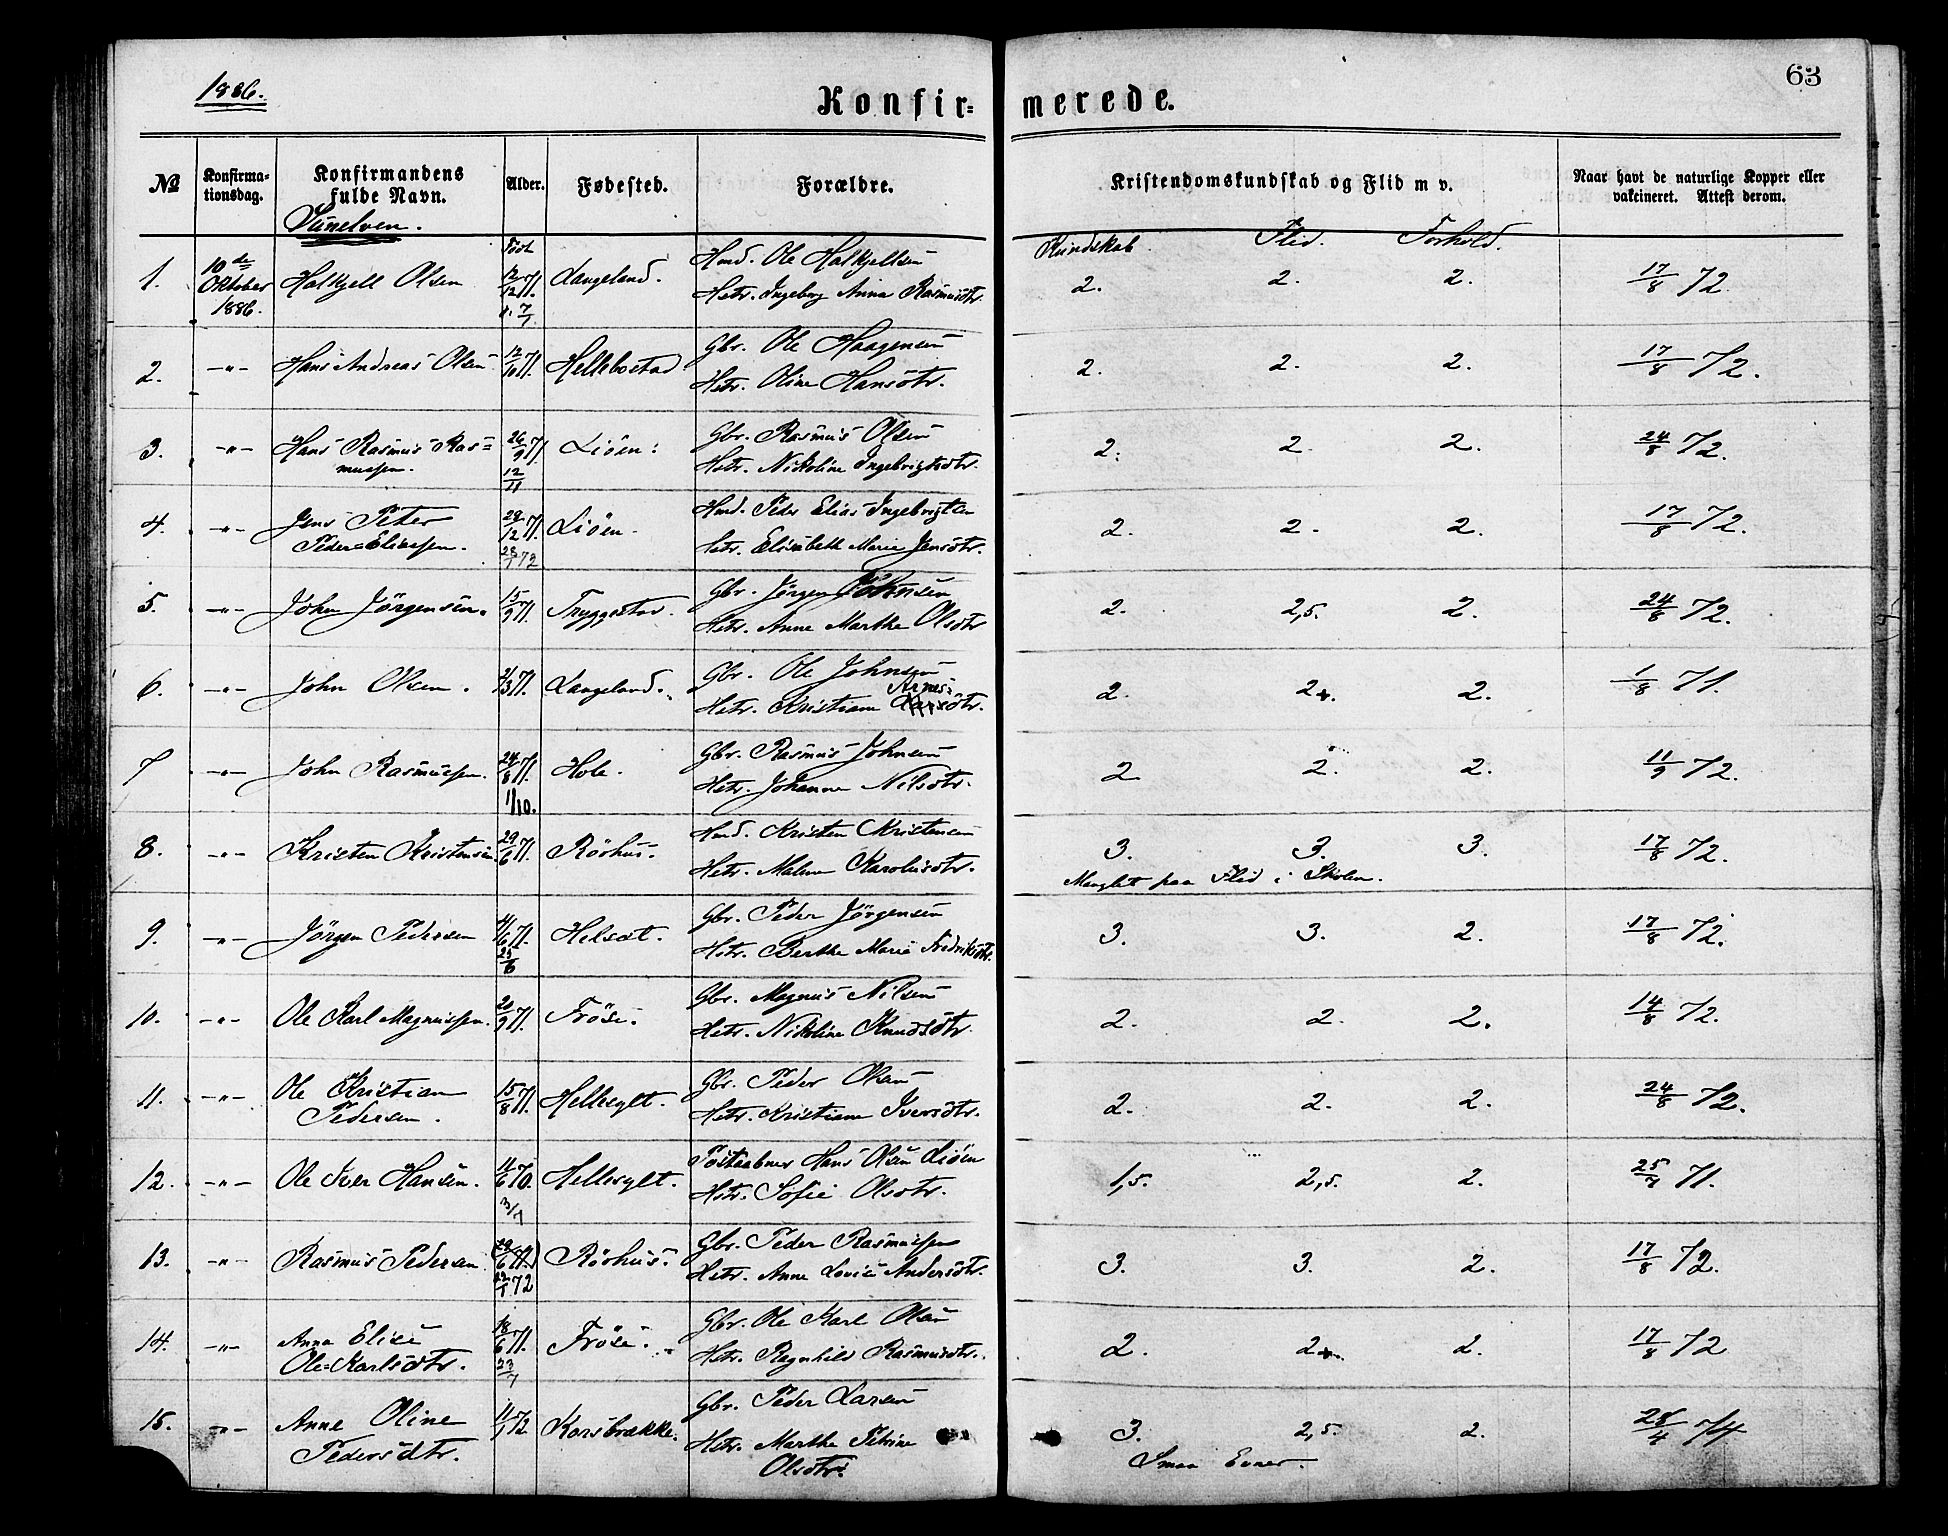 1886.
63
Konfir=merede.
No
Konfirma-
tionsdag.
Konfirmandens
fulde Navn.
Alder.
Fødested.
Forældre.
Kristendomskundskab og Flid m v.
Naar havt de naturlige Kopper eller
vakcineret. Attest derom.
Sunelven.
Født
Kundskab Flid. Forhold.
1. 10de Oktober 1886. Halkjell Olsen 12/12 71. 7/1. Langeland. Gmd. Ole Halkjellsen
Hstr. Ingeborg Anna Rasmusdtr. 2. 2. 2. 17/8 72
2. -"- Hans Andreas Olsen 12/10 71. Hellebostad Gbr. Ole Haagensen
Hstr. Oline Hansdtr. 2. 2. 2. 17/8 72.
3. -"- Hans Rasmus Ras=
mussen. 26/9 71. 12/11 Liöen. Gbr. Rasmus Olsen
Hstr. Nikoline Ingebrigtsdtr. 2. 2. 2. 24/8 72.
4. -"- Jens Peter
Peder=Eliassen. 29/12 71. 28/1 72 Liöen. Hmd. Peder Elias Ingebrigtsen
Hstr. Elisabeth Marie Jensdtr. 2. 2. 2. 17/8 72.
5. -"- John Jörgensen. 15/9 71. Tryggestad. Gbr. Jörgen Johnsen
Hstr. Anne Marthe Olsdtr 2. 2,5. 2. 24/8 72.
6. -"- John Olsen. 2/3 71. Langeland. Gbr. Ole Johnsen
Hstr. Kristiane Arnesdtr. 2. 2+. 2. 1/8 71.
7 -"- John Rasmussen. 24/8 71. 1/10. Hole. Gbr. Rasmus Johnsen
Hstr. Johanne Nilsdtr. 2 2. 2. 11/9 72.
8. -"- Kristen Kristensen. 29/6 71. Röshus. Hmd. Kristen Kristensen
Hstr. Malene Karolusdtr. 3. 3. 3. 17/8 72.
Manglet paa Flid i Skolen.
9. -"- Jörgen Pedersen 4/6 71. 25/6 Helsæt. Gbr. Peder Jörgensen
Hstr. Berthe Marie Fredriksdtr. 3. 3. 2. 17/8 72.
10. -"- Ole Karl Magnussen. 20/9 71. Fröse. Gbr. Magnus Nilsen
Hstr. Nikoline Knudsdtr. 2. 2. 2. 14/8 72.
11. -"- Ole Kristian
Pedersen. 15/8 71. Hellesylt. Gbr. Peder Olsen
Hstr. Kristiane Iversdtr. 2. 2. 2. 24/8 72.
12. -"- Ole Iver Hansen. 11/6 70. 3/7 Hellesylt. Postaabner Hans Olsen Liöen
Hstr. Sofie Olsdtr. 1,5. 2,5. 2. 25/7 71.
13. -"- Rasmus Pedersen (29/6 71.) 22/1 72 Röshus. Gbr. Peder Rasmussen
Hstr. Anne Lovise Andersdtr. 3. 3. 2. 17/8 72.
14. -"- Anna Elise
Ole=Karlsdtr. 18/6 71. 23/7 Fröse. Gbr. Ole Karl Olsen
Hstr. Ragnhild Rasmusdtr. 2. 2+. 2. 17/8 72
15. -"- Anne Oline
Pedersdtr. 11/1 72 Korsbrække. Gbr. Peder Larsen
Hstr. Marthe Petrine
Olsdtr. 3. 2,5. 2. 28/4 74
Smaa Evner.